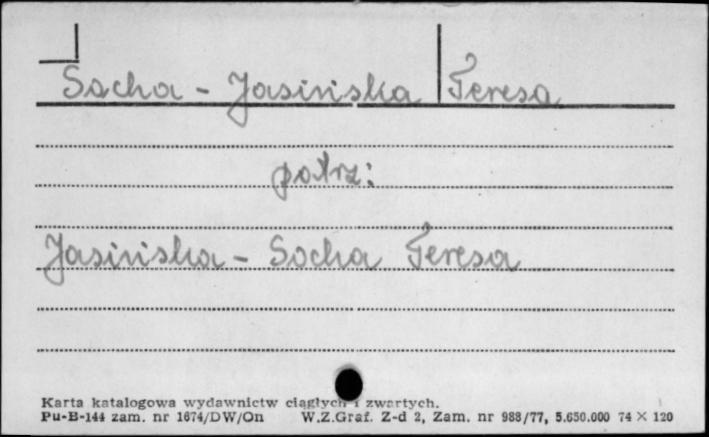 Socha - Jasińska Teresa
patrz:
Jasińska - Socha Teresa
Karta katalogowa wydawnictw ciągłych i zwartych.
Pu-B-144 zam. nr 1674/DW/On W.Z.Graf. Z-d 2, Zam. nr 988/77, 5.650.000 74 × 120